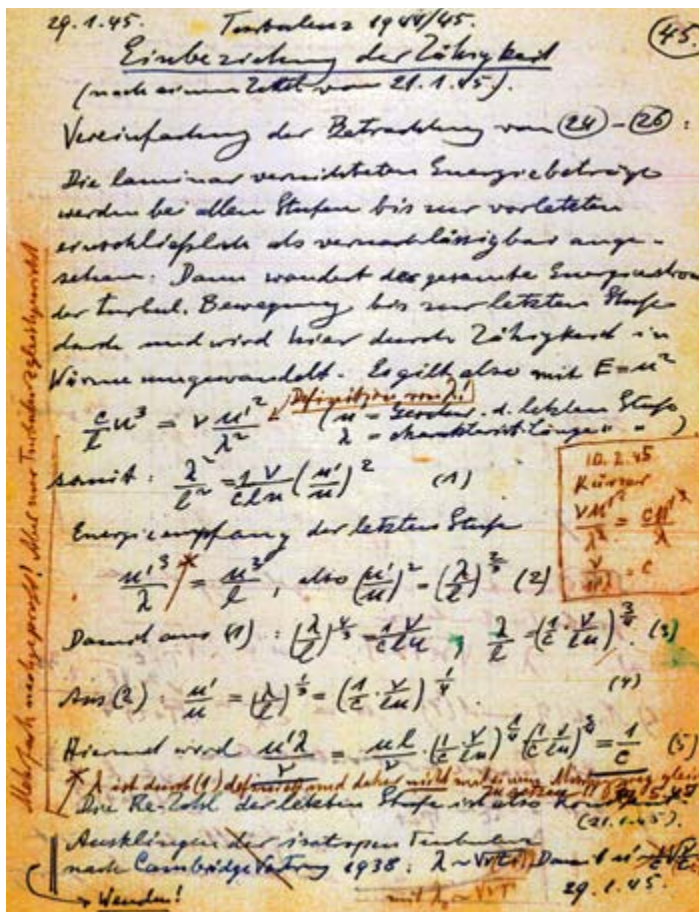 29.1.45. Turbulenz 1944/45. (45)
Einbeziehung der Zähigkeit
(nach einem Zettel vom 21.1.45).
Vereinfachung der Betrachtung von (24) – (26) :
Die laminar vernichteten Energiebeträge
werden bei allen Stufen bis zur vorletzten
einschließlich als vernachlässigbar ange-
sehen. Dann wandert der gesamte Energiestrom
der turbul. Bewegung bis zur letzten Stufe
durch und wird hier durch Zähigkeit in
Wärme umgewandelt. Es gilt also mit E=u²
Definition von λ!
c/l u³ = ν u'²/λ² (u' = Geschw. d. letzten Stufe
λ = charakterist. Länge " " )
somit: λ²/l² = 1/c ν/lu (u'/u)² (1)
10.2.45
Kürzer
νu'²/λ² = cu'³/λ
ν/u'λ = c
Energieempfang der letzten Stufe
u'³/λ * = u³/l, also (u'/u)² = (λ/l)^⅔ (2)
Damit aus (1) : (λ/l)^4/3 = 1/c ν/lu , λ/l = (1/c · ν/lu)^¾. (3)
Aus (2) : u'/u = (λ/l)^⅓ = (1/c · ν/lu)^¼. (4)
Hiermit wird u'λ/ν = ul/ν · (1/c ν/lu)^¼ (1/c ν/lu)^¾ = 1/c (5)
* λ ist durch (1) definiert und daher nicht
Die Re-Zahl der letzten Stufe ist also konstant.
(21.1.45).
Ausklingen der isotropen Turbulenz
nach Cambridge Vortrag 1938 : λ ~ √νt, Dann
29.1.45.
Wenden!